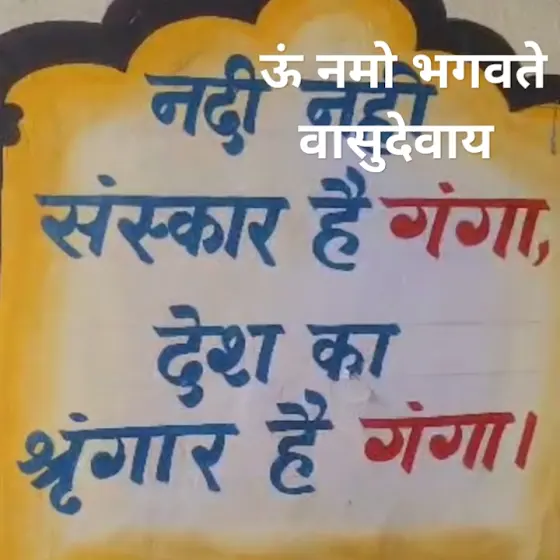 ऊं नमो भगवते
वासुदेवाय
नदी नही
संस्कार है गंगा,
देश का
श्रृंगार है गंगा।